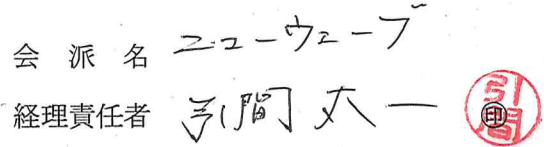 会派名 ニューウェーブ
経理責任者 引間太一 ㊞ 引間